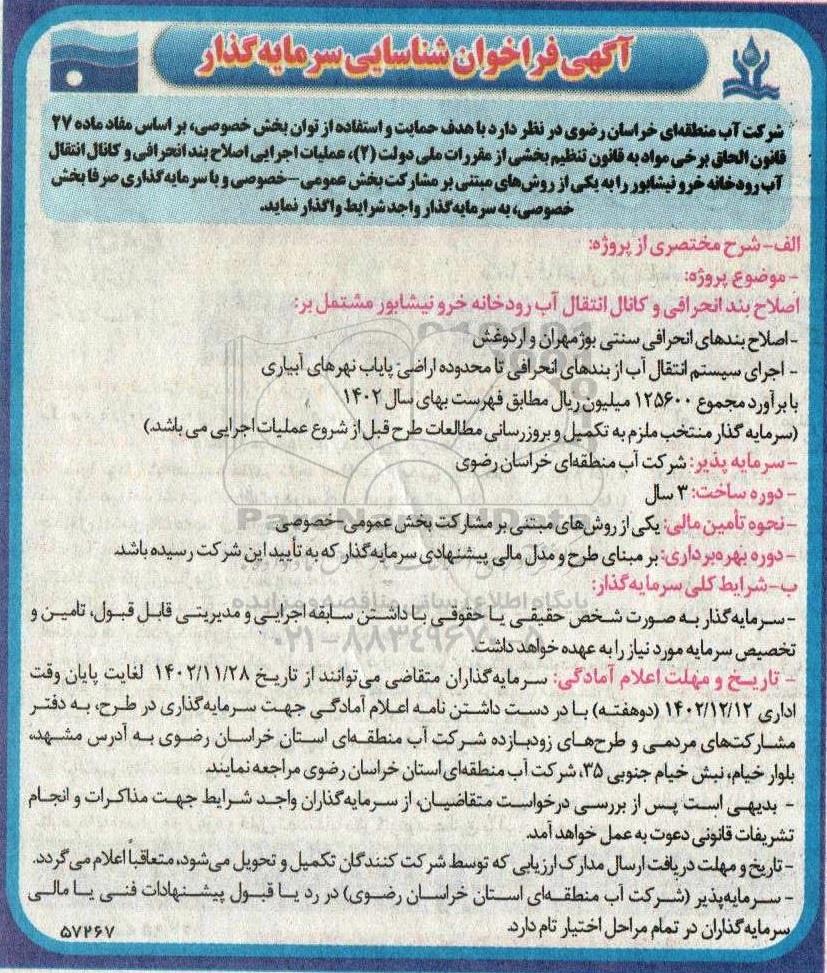 آگهی فراخوان شناسایی سرمایه گذار
شرکت آب منطقه‌ای خراسان رضوی در نظر دارد با هدف حمایت و استفاده از توان بخش خصوصی، بر اساس مفاد ماده ۲۷
قانون الحاق برخی مواد به قانون تنظیم بخشی از مقررات ملی دولت (۲)، عملیات اجرایی اصلاح بند انحرافی و کانال انتقال
آب رودخانه خرو نیشابور را به یکی از روش‌های مبتنی بر مشارکت بخش عمومی-خصوصی و با سرمایه گذاری صرفا بخش
خصوصی، به سرمایه گذار واجد شرایط واگذار نماید.
الف- شرح مختصری از پروژه:
- موضوع پروژه:
اصلاح بند انحرافی و کانال انتقال آب رودخانه خرو نیشابور مشتمل بر:
- اصلاح بندهای انحرافی سنتی بوژمهران و اردوغش
- اجرای سیستم انتقال آب از بندهای انحرافی تا محدوده اراضی پایاب نهرهای آبیاری
با برآورد مجموع ۱۲۵۶۰۰ میلیون ریال مطابق فهرست بهای سال ۱۴۰۲
(سرمایه گذار منتخب ملزم به تکمیل و بروزرسانی مطالعات طرح قبل از شروع عملیات اجرایی می باشد.)
- سرمایه پذیر: شرکت آب منطقه‌ای خراسان رضوی
- دوره ساخت: ۳ سال
- نحوه تأمین مالی: یکی از روش‌های مبتنی بر مشارکت بخش عمومی-خصوصی
- دوره بهره‌برداری: بر مبنای طرح و مدل مالی پیشنهادی سرمایه گذار که به تأیید این شرکت رسیده باشد.
ب- شرایط کلی سرمایه گذار:
- سرمایه گذار به صورت شخص حقیقی یا حقوقی با داشتن سابقه اجرایی و مدیریتی قابل قبول، تامین و
تخصیص سرمایه مورد نیاز را به عهده خواهد داشت.
- تاریخ و مهلت اعلام آمادگی: سرمایه گذاران متقاضی می‌توانند از تاریخ ۱۴۰۲/۱۱/۲۸ لغایت پایان وقت
اداری ۱۴۰۲/۱۲/۱۲ (دوهفته) با در دست داشتن نامه اعلام آمادگی جهت سرمایه گذاری در طرح، به دفتر
مشارکت‌های مردمی و طرح‌های زودبازده شرکت آب منطقه‌ای استان خراسان رضوی به آدرس مشهد،
بلوار خیام، نبش خیام جنوبی ۳۵، شرکت آب منطقه‌ای استان خراسان رضوی مراجعه نمایند.
- بدیهی است پس از بررسی درخواست متقاضیان، از سرمایه گذاران واجد شرایط جهت مذاکرات و انجام
تشریفات قانونی دعوت به عمل خواهد آمد.
- تاریخ و مهلت دریافت ارسال مدارک ارزیابی که توسط شرکت کنندگان تکمیل و تحویل می‌شود، متعاقباً اعلام می گردد.
- سرمایه‌پذیر (شرکت آب منطقه‌ای استان خراسان رضوی) در رد یا قبول پیشنهادات فنی یا مالی
سرمایه گذاران در تمام مراحل اختیار تام دارد.
۵۷۲۶۷
ParsNamadData
پایگاه اطلاع رسانی مناقصه و مزایده
۰۲۱-۸۸۳۴۹۶۷۰-۵